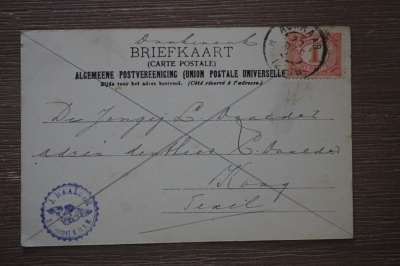 Drukwerk
BRIEFKAART
(CARTE POSTALE)
ALGEMEENE POSTVEREENIGING (UNION POSTALE UNIVERSELLE)
Zijde voor het adres bestemd. (Côté réservé à l'adresse.)
ALKMAAR
1
C. Daalder
adres den Heer C. Daalder
Koog
Texel